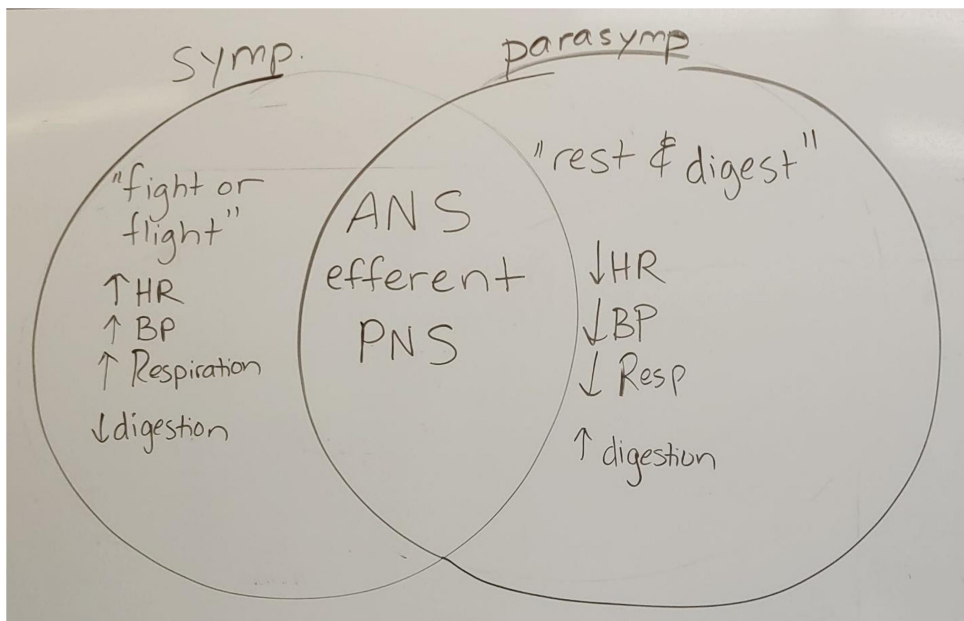 symp.
parasymp
"fight or
flight"
↑ HR
↑ BP
↑ Respiration
↓ digestion
ANS
efferent
PNS
"rest & digest"
↓ HR
↓ BP
↓ Resp
↑ digestion